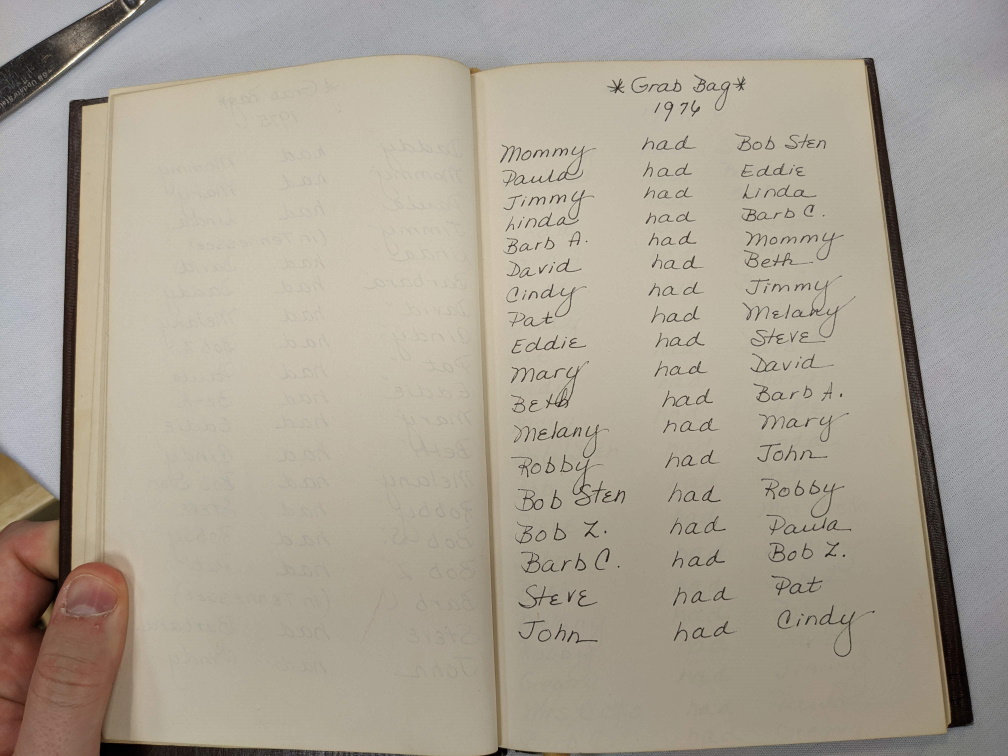 * Grab Bag *
1976
Mommy had Bob Sten
Paula had Eddie
Jimmy had Linda
Linda had Barb C.
Barb A. had Mommy
David had Beth
Cindy had Jimmy
Pat had Melany
Eddie had Steve
Mary had David
Beth had Barb A.
Melany had Mary
Robby had John
Bob Sten had Robby
Bob Z. had Paula
Barb C. had Bob Z.
Steve had Pat
John had Cindy